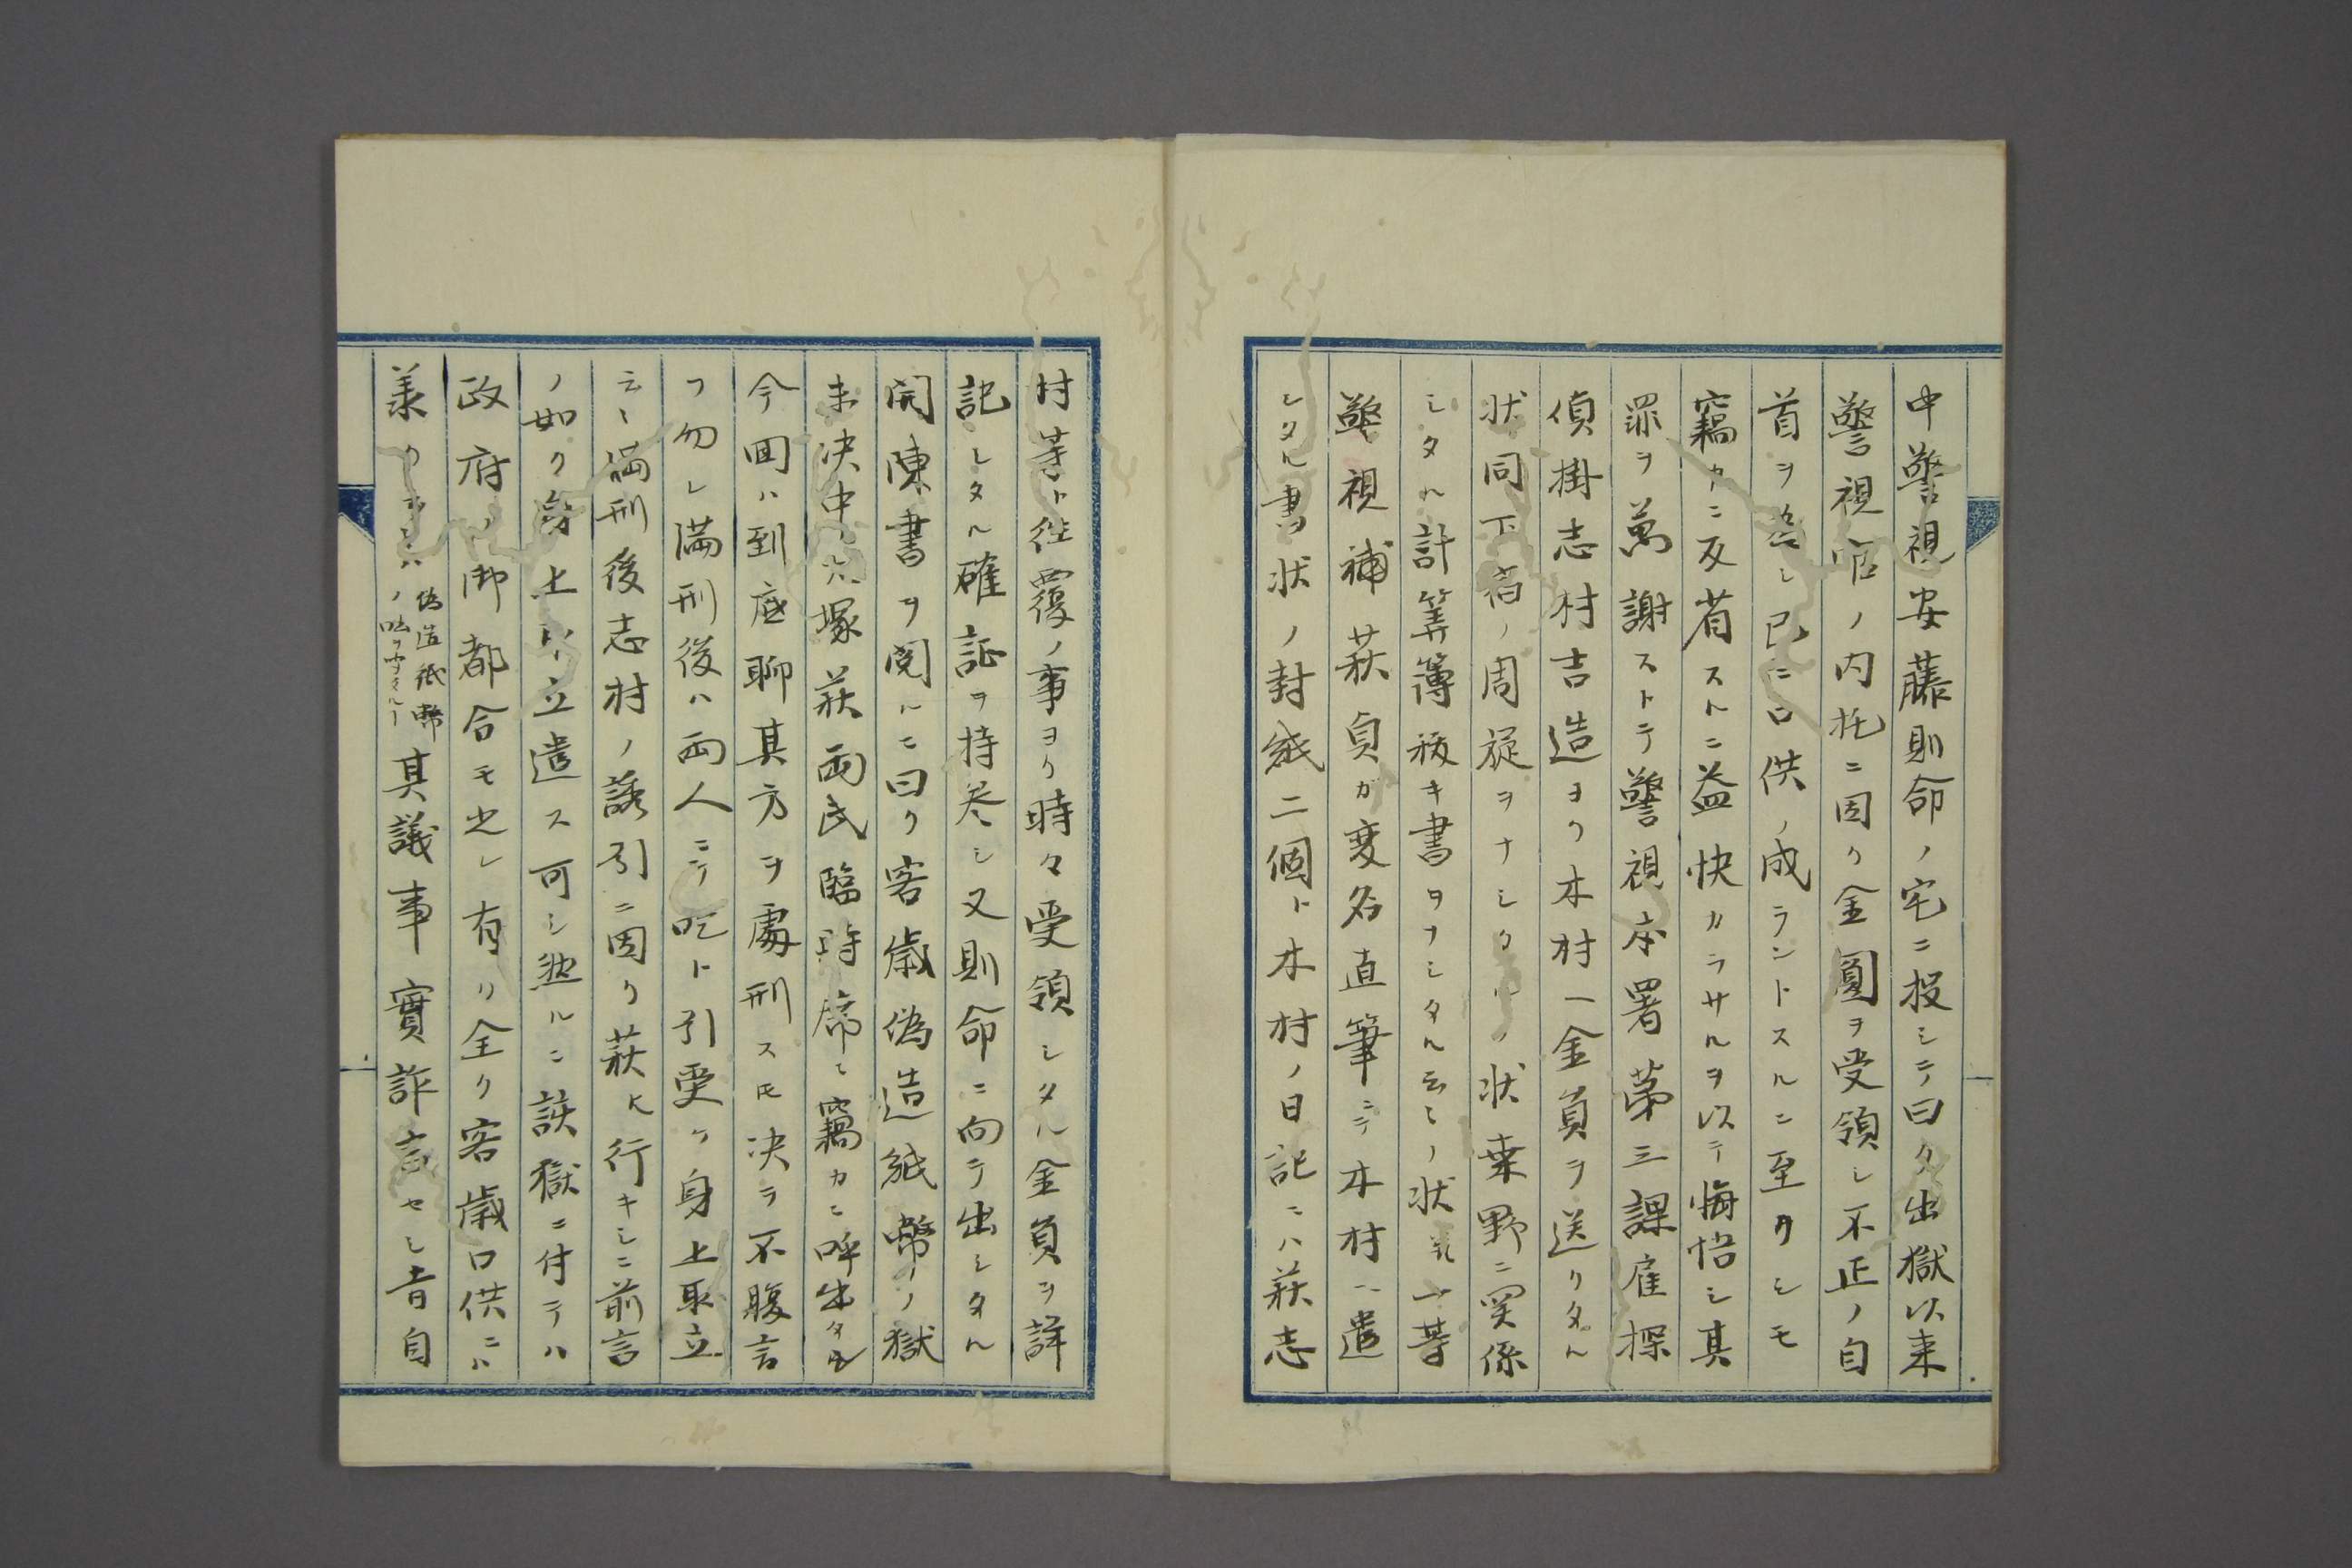 中警視安藤則命ノ宅ニ投シテ曰ク出獄以来
警視官ノ内托ニ因リ金圓ヲ受領シ不正ノ自
首ヲ為シ已ニ口供ノ成ラントスルニ至リシモ
竊カニ反省スルニ益快カラサルヲ以テ悔悟シ其
罪ヲ萬謝ストテ警視本署第三課雇探
偵掛志村吉造ヨリ木村一金員ヲ送リタル
状同下宿ノ周旋ヲナシタリノ状桒野ニ関係
シタル計筭簿抜キ書ヲナシタル云々ノ状一等
警視補萩貞が変名直筆ニテ木村ニ遣
シタル書状ノ封紙二個ト木村ノ日記ニハ萩志
村等ト往覆ノ事ヨリ時々受領シタル金員ヲ詳
記シタル確証ヲ持参シ又則命ニ向テ出シタル
開陳書ヲ閲ルニ曰ク客歳偽造紙幣ノ獄
未決中大塚萩両氏臨時席ニ竊カニ呼出タル
今回ハ到底聊其方ヲ處刑スルモ决ラ不腹言
フ勿レ満刑後ハ両人ニテ吃ト引受ケ身上取立
云々満刑後志村ノ誘引ニ因リ萩氏行キシニ前言
ノ如ク身上取立遣ス可シ然ルニ該獄ニ付テハ
政府ノ御都合モ之レ有リ全ク客歳口供ニハ
義カ 偽造紙幣 其議事實詐言セシ者自